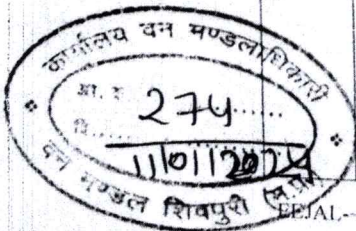 कार्यालय वन मण्डलाधिकारी
आ. क्र. 274
दि. 11/01/2024
वन मण्डल शिवपुरी (म.प्र.)
EEJAL--